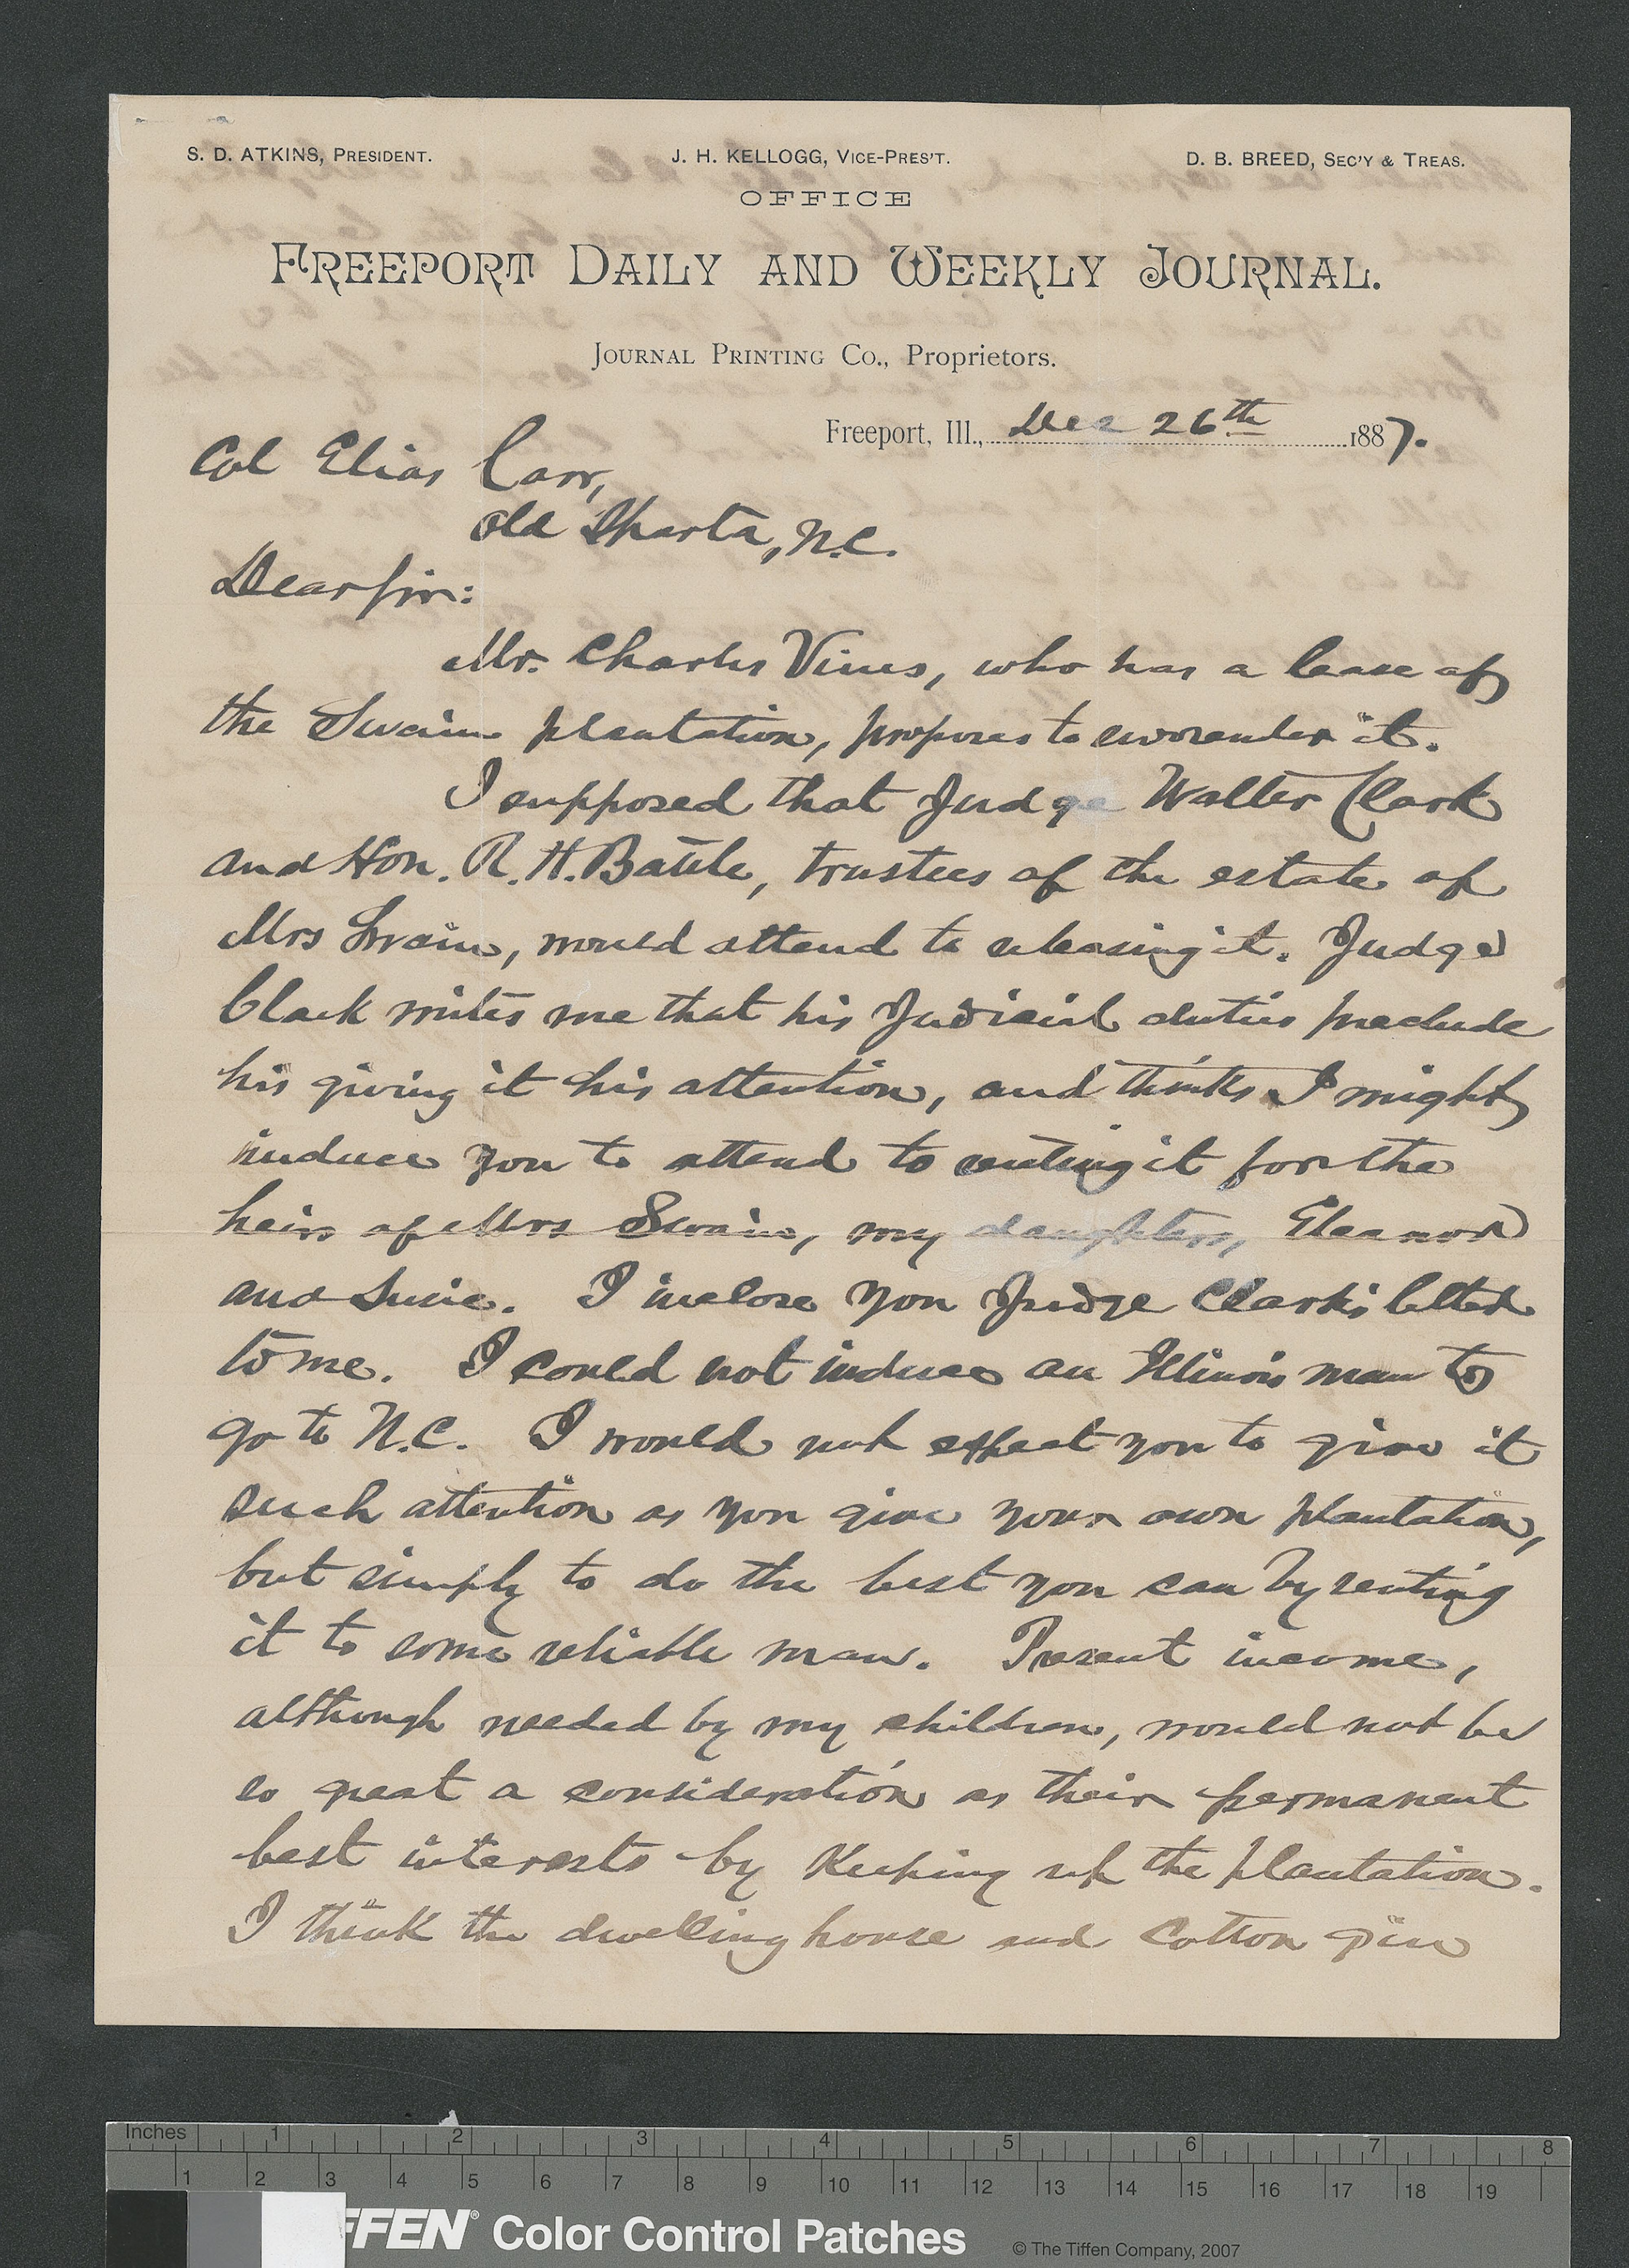 S. D. ATKINS, PRESIDENT. J. H. KELLOGG, VICE-PRES'T. D. B. BREED, SEC'Y & TREAS.
OFFICE
FREEPORT DAILY AND WEEKLY JOURNAL.
JOURNAL PRINTING CO., Proprietors.
Freeport, Ill., Dec 26th 1887.
Col Elias Carr,
Old Sparta, N.C.
Dear Sir:
Mr. Charles Vines, who has a lease of
the Swain plantation, proposes to surrender it.
I supposed that Judge Walter Clark
and Hon. R. H. Battle, trustees of the estate of
Mrs Swain, would attend to releasing it. Judge
Clark writes me that his Judicial duties preclude
his giving it his attention, and thinks I might
induce you to attend to renting it for the
heirs of Mrs Swain, my daughters, Eleanor
and Susie. I inclose you Judge Clark's letter
to me. I could not induce an Illinois man to
go to N.C. I would not expect you to give it
such attention as you give your own plantation,
but simply to do the best you can by renting
it to some reliable man. Present income,
although needed by my children, would not be
so great a consideration as their permanent
best interests by Keeping up the plantation.
I think the dwelling house and cotton gin
Inches 1 2 3 4 5 6 7 8
1 2 3 4 5 6 7 8 9 10 11 12 13 14 15 16 17 18 19
FFEN® Color Control Patches © The Tiffen Company, 2007